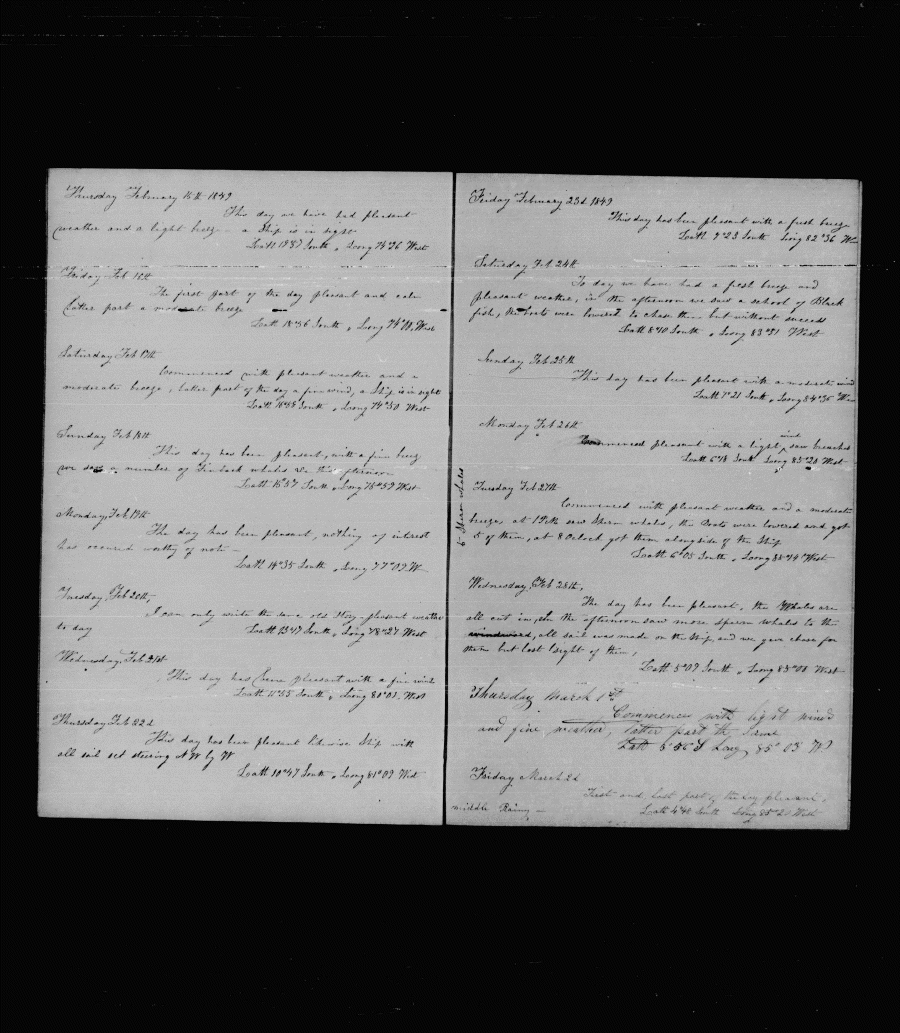 Thursday February 15th 1849
This day we have had pleasant
weather and a light breeze - a Ship is in sight
Latt 19°37 South, Long 74°36 West
Friday Feb 16th
The first part of the day pleasant and calm
latter part a moderate breeze
Latt 18°36 South, Long 74°18 West
Saturday Feb 17th
Commenced with pleasant weather and a
moderate breeze, latter part of the day a fine wind, a Ship is in sight
Latt South, Long 74°50 West
Sunday Feb 18th
This day has been pleasant, with a fine breeze
we saw a number of Finback whales in this afternoon
Latt 15°57 South, Long 75°59 West
Monday, Feb 19th
The day has been pleasant, nothing of intrest
has occured worthy of note -
Latt 14°35 South, Long 77°09 W
Tuesday, Feb 20th,
I can only write the same old story - pleasant weather
to day Latt 13°17 South, Long 78°27 West
Wednesday, Feb 21st
This day has been pleasant with a fine wind
Latt 11°55 South, Long 80°03, West
Thursday Feb 22d
This day has been pleasant likewise Ship with
all sail set steering N W by W
Latt 10°47 South, Long 81°09 West
Friday February 23d 1849
This day has been pleasant with a fresh breeze
Latt 9°23 South Long 82°36 West
Saturday Feb 24th
To day we have had a fresh breeze and
pleasant weather, in the afternoon we saw a school of Black
fish, the boats were lowered to chase them but without success
Latt 8°10 South, Long 83°31 West
Sunday Feb 25th
This day has been pleasant with a moderate wind
Latt 7°21 South, Long 84°36 West
Monday Feb 26th
wind
Commenced pleasant with a light saw breaches
Latt 6°18 South Long 85°20 West
Tuesday Feb 27th
Commenced with pleasant weather and a moderate
breeze, at saw Sperm whales, the boats were lowered and got
5 of them, at 8 Oclock got them alongside of the Ship
Latt 6°05 South, Long 85°14 West
5 Sperm whales
Wednesday, Feb 28th,
The day has been pleasant, the Whales are
all cut in, In the afternoon saw more sperm whales to the
windward, all sail was made on the ship, and we gave chase for
them but lost sight of them,
Latt 5°09 South, Long 85°08 West
Thursday March 1st
Commences with light winds
and fine weather, latter part the same
Latt 5°56 S Long 85°03 W
Friday March 2d
First and last part of the day pleasant,
middle Rainy - Latt 4°48 South Long 85°20 West